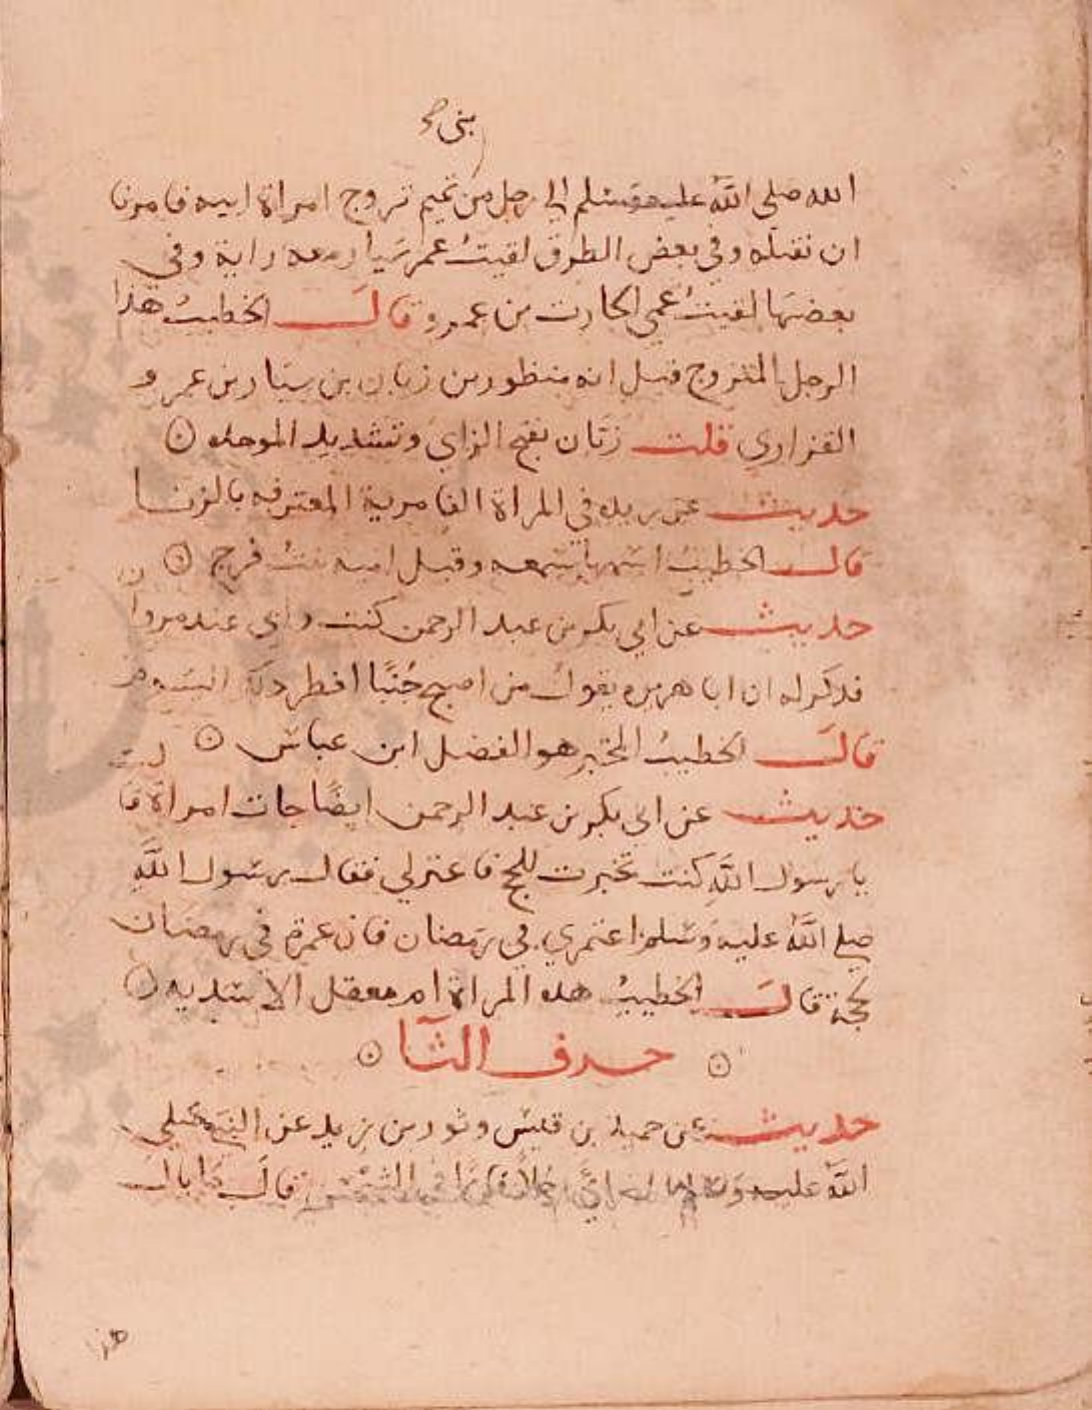 بنى صح
الله صلى الله عليه وسلم الى رجل من تميم تزوج امراة ابيه فامرنا
ان نقتله وفي بعض الطرق لقيت عمر سيارمعه راية وفي
بعضها لقيت عمي الحارث بن عمرو قال الخطيب هذا
الرجل المتزوج قيل انه منظور بن زبان بن سيار بن عمرو
الفزاري قلت زبان بفتح الزاي وتشديد الموحده
حديث عن بريده في المراة الغامدية المعترفه بالزنا
قال الخطيب اسمها سبيعه وقيل اميه بنت فرج
حديث عن ابي بكر بن عبد الرحمن كنت وابي عند مروان
فذكر له ان ابا هريره يقول من اصبح جنبا افطر ذلك اليوم
قال الخطيب المخبر هو الفضل ابن عباس
حديث عن ابي بكر بن عبد الرحمن ايضا جات امراة قالت
يا رسول الله كنت تجهزت للحج فاعترلي فقال رسول الله
صلى الله عليه وسلم اعتمري في رمضان فان عمرة في رمضان
كحجة قال الخطيب هذه المراة ام معقل الاسديه
حرف الثا
حديث عن حميد بن قيس وثور بن يزيد عن النبي صلى
الله عليه وسلم راى رجلا قايما في الشمس قال ما بال
هذا